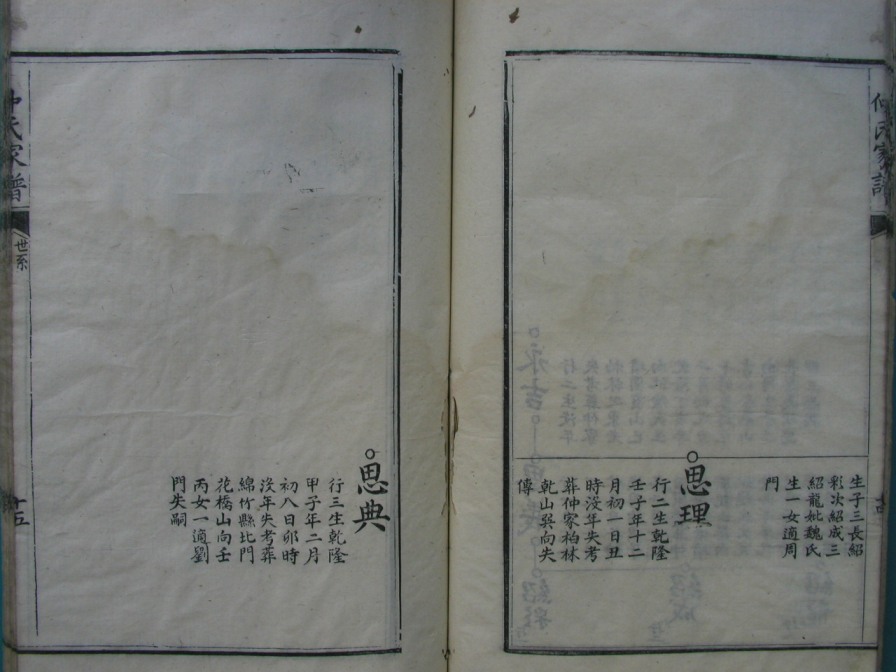 生子三長紹
彩次紹成三
紹龍妣魏氏
生一女適周
門
思理
行二生乾隆
壬子年十二
月初一日丑
時没年失考
葬仲家柏林
乾山巽向失
傳
思典
行三生乾隆
甲子年二月
初八日卯時
没年失考葬
綿竹縣北門
花橋山向壬
丙女一適劉
門失嗣
氏家譜
世系
十五